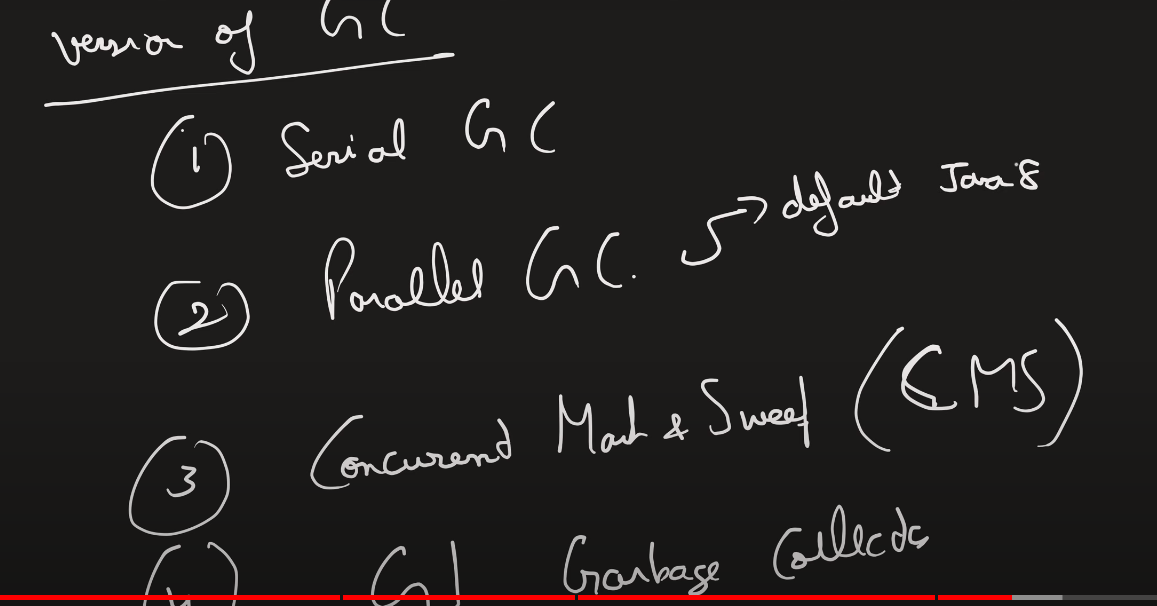 version of GC
1 Serial GC
2 Parallel GC. → default Java 8
3 Concurrend Mark & Sweep (CMS)
4 G1 Garbage Collecdc